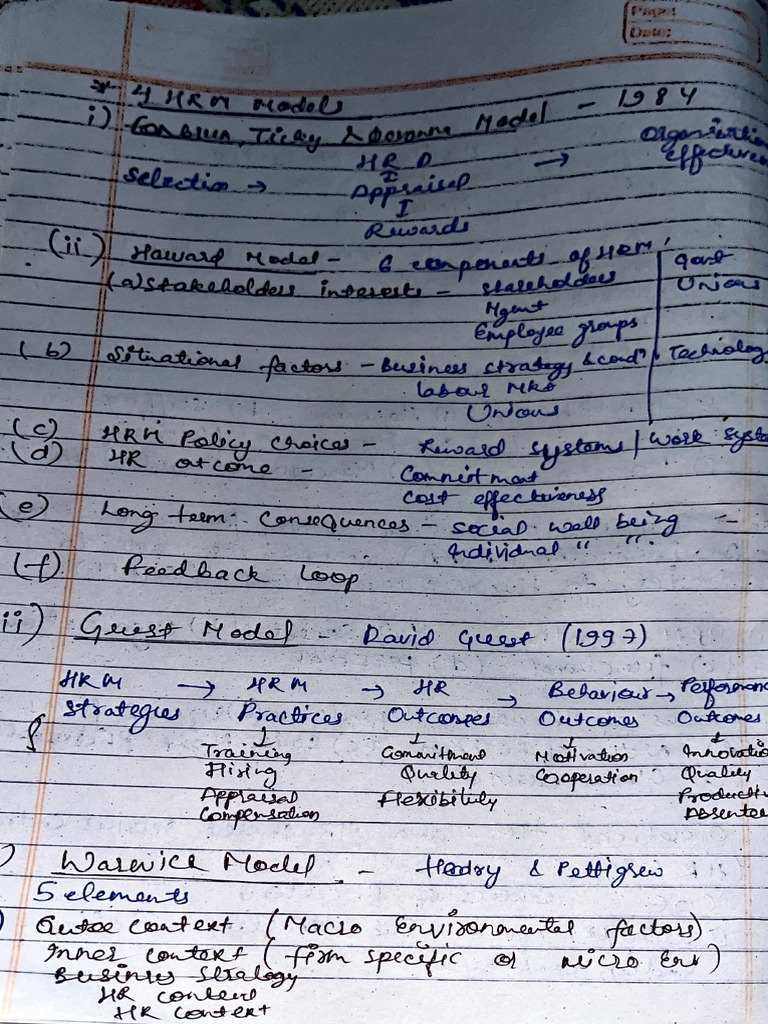 Page:
Date:
* 4 HRM Models
i) Fombrun, Tichy & Devanna Model - 1984
HRD → Organisation effectiven
Selection → Appraisal
Rewards
(ii) Havard Model - 6 components of HRM
(a) Stakeholders interests - Stakeholders | Govt
Mgmt | Unions
Employee groups
(b) Situational factors - Business strategy & condn | Technology
Labour Mkt
Unions
(c) HRM Policy Choices - Reward systems / Work Syste
(d) HR outcome - Commitment
Cost effectiveness
(e) Long term Consequences - Social well being
Individual " "
(f) Feedback Loop
ii) Guest Model - David Guest (1997)
HRM → HRM → HR → Behaviour → Performanc
Strategies Practices Outcomes Outcomes Outcomes
Training Commitment Motivation Innovatio
Hiring Quality Cooperation Quality
Appraisal Flexibility Producti
Compensation Absentee
) Warwick Model - Hendry & Pettigrew
5 elements
Outer context (Macro Environmental factors)
Inner context (firm specific or micro Env)
Business Strategy
HR content
HR context